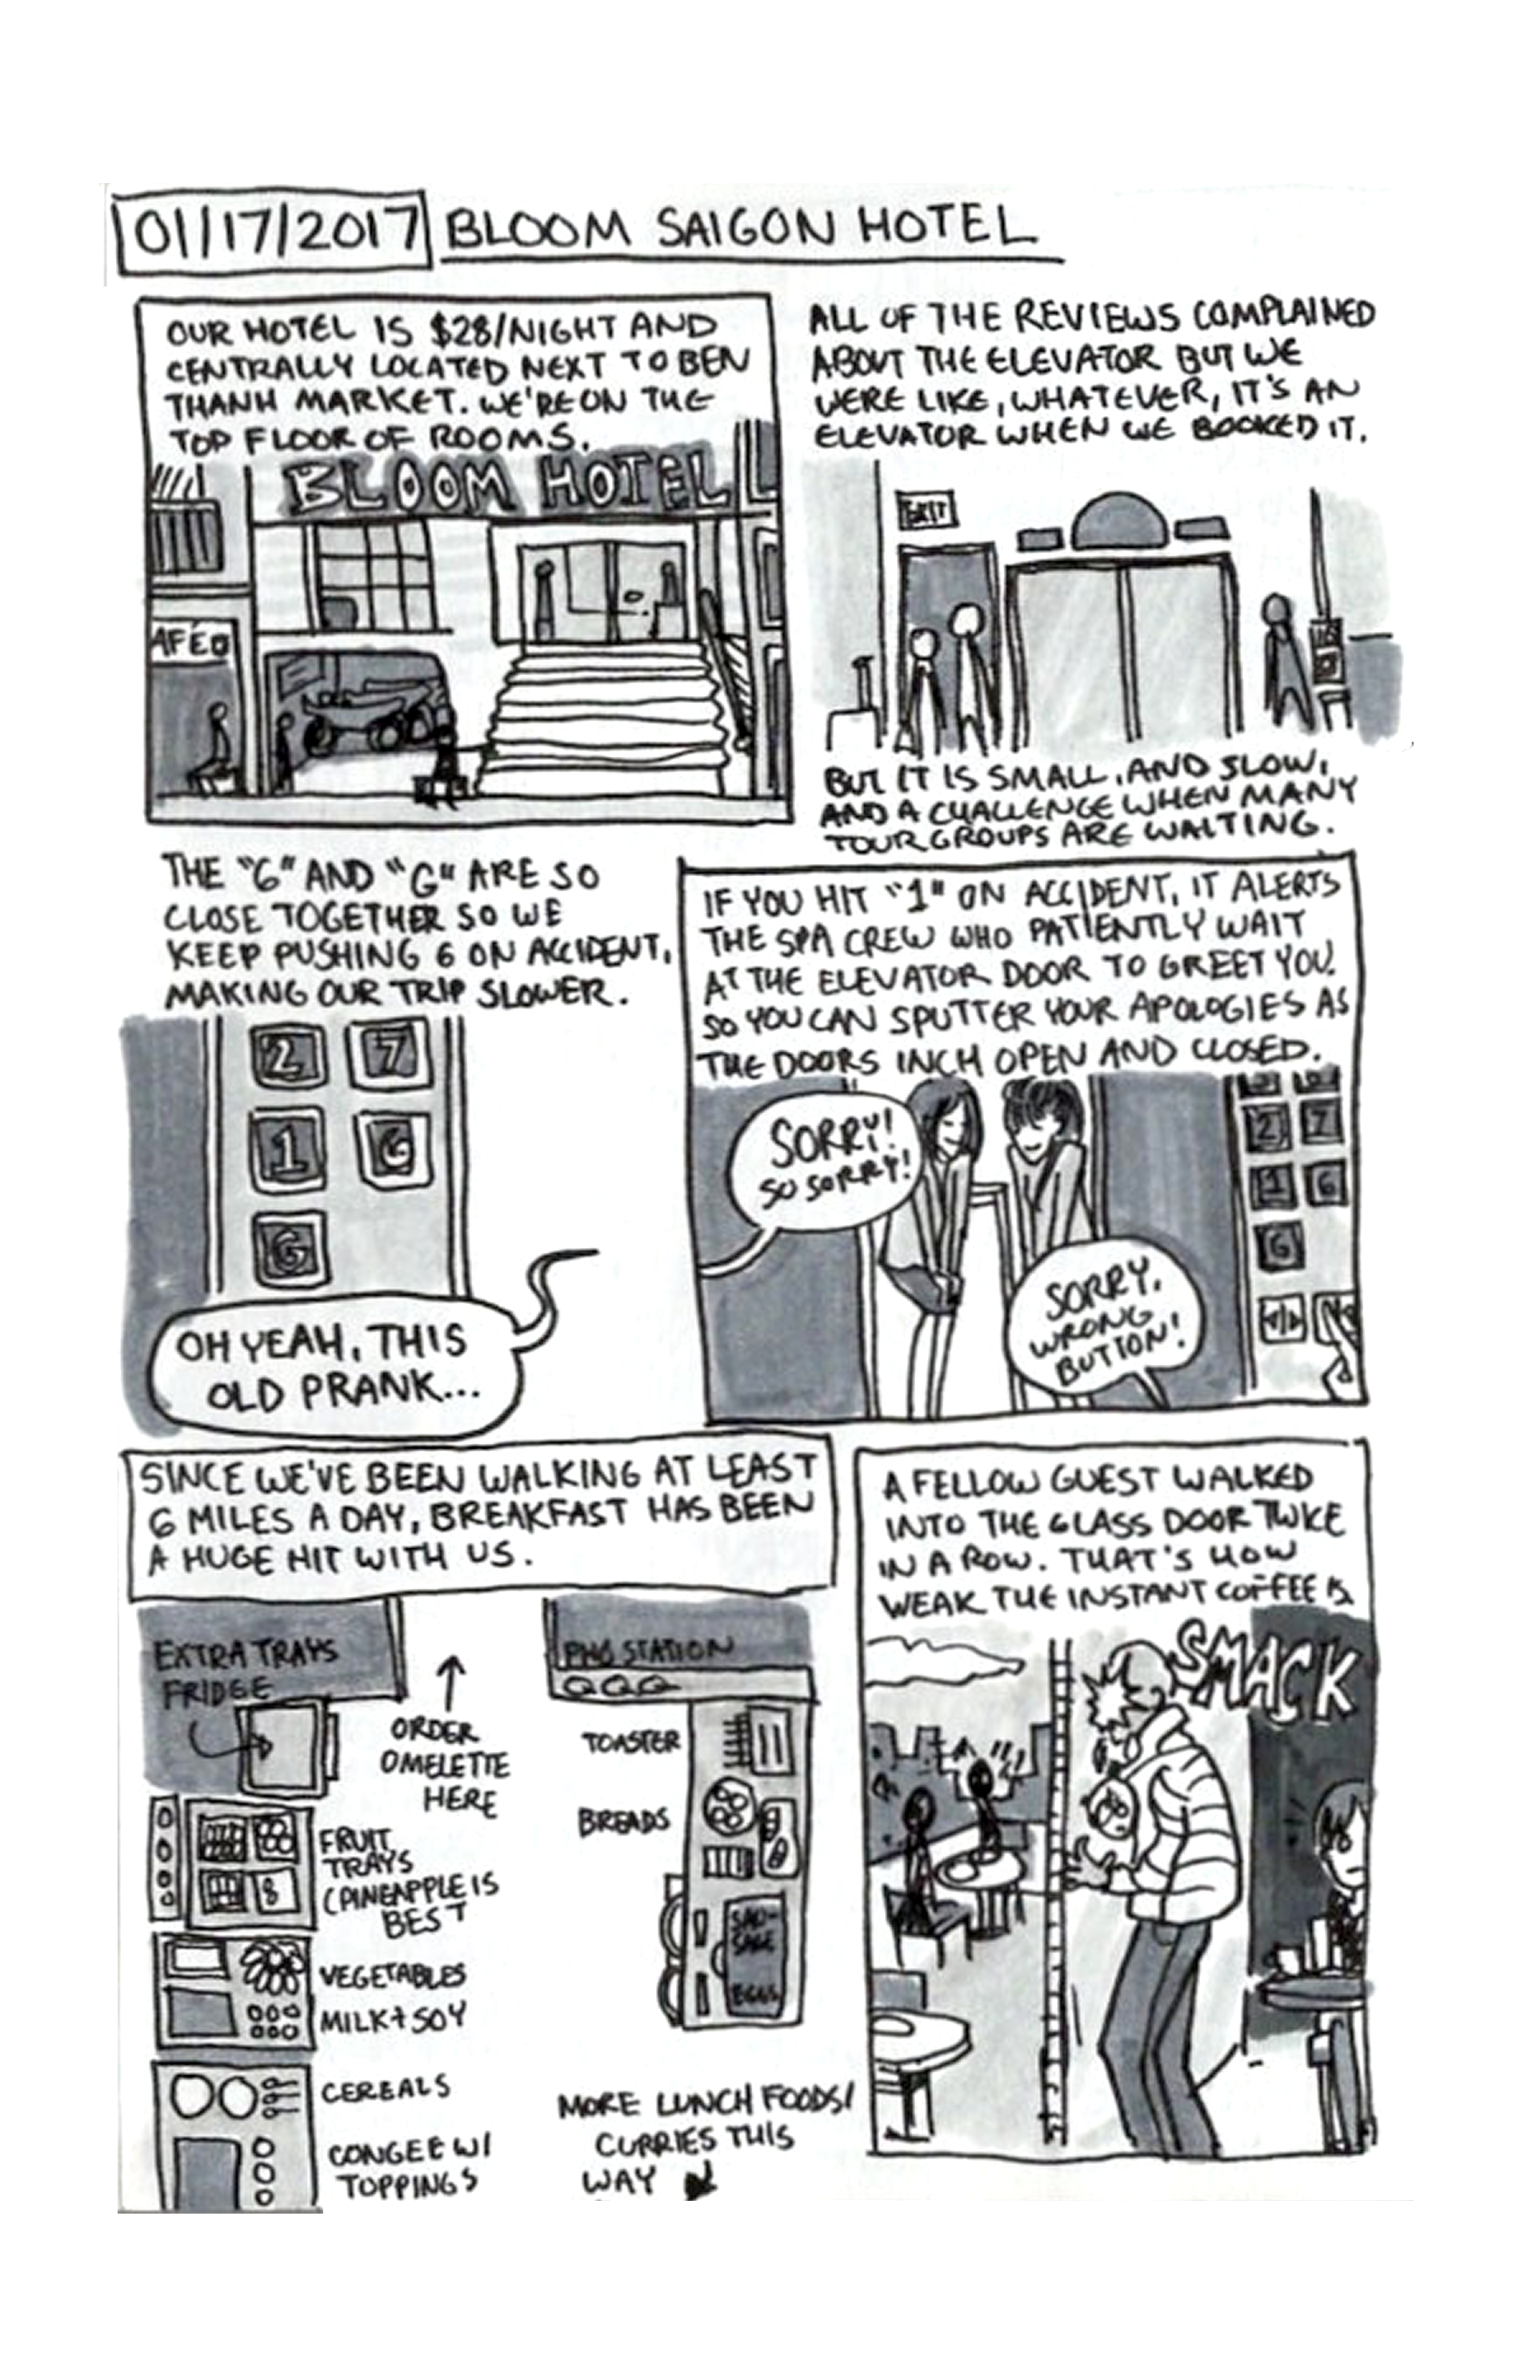 01/17/2017 BLOOM SAIGON HOTEL
OUR HOTEL IS $28/NIGHT AND
CENTRALLY LOCATED NEXT TO BEN
THANH MARKET. WE'RE ON THE
TOP FLOOR OF ROOMS.
BLOOM HOTEL
AFÉ
ALL OF THE REVIEWS COMPLAINED
ABOUT THE ELEVATOR BUT WE
WERE LIKE, WHATEVER, IT'S AN
ELEVATOR WHEN WE BOOKED IT.
EXIT
BUT IT IS SMALL, AND SLOW,
AND A CHALLENGE WHEN MANY
TOUR GROUPS ARE WAITING.
THE "6" AND "G" ARE SO
CLOSE TOGETHER SO WE
KEEP PUSHING 6 ON ACCIDENT,
MAKING OUR TRIP SLOWER.
2 7
1 6
G
OH YEAH, THIS
OLD PRANK...
IF YOU HIT "1" ON ACCIDENT, IT ALERTS
THE SPA CREW WHO PATIENTLY WAIT
AT THE ELEVATOR DOOR TO GREET YOU.
SO YOU CAN SPUTTER YOUR APOLOGIES AS
THE DOORS INCH OPEN AND CLOSED.
SORRY!
SO SORRY!
2 7
1 6
G
SORRY,
WRONG
BUTTON!
SINCE WE'VE BEEN WALKING AT LEAST
6 MILES A DAY, BREAKFAST HAS BEEN
A HUGE HIT WITH US.
EXTRA TRAYS
FRIDGE
ORDER
OMELETTE
HERE
PHO STATION
TOASTER
BREADS
FRUIT
TRAYS
(PINEAPPLE IS
BEST
SAU-
SAGE
EGGS
VEGETABLES
MILK + SOY
CEREALS
CONGEE W/
TOPPINGS
MORE LUNCH FOODS/
CURRIES THIS
WAY
A FELLOW GUEST WALKED
INTO THE GLASS DOOR TWICE
IN A ROW. THAT'S HOW
WEAK THE INSTANT COFFEE IS.
SMACK